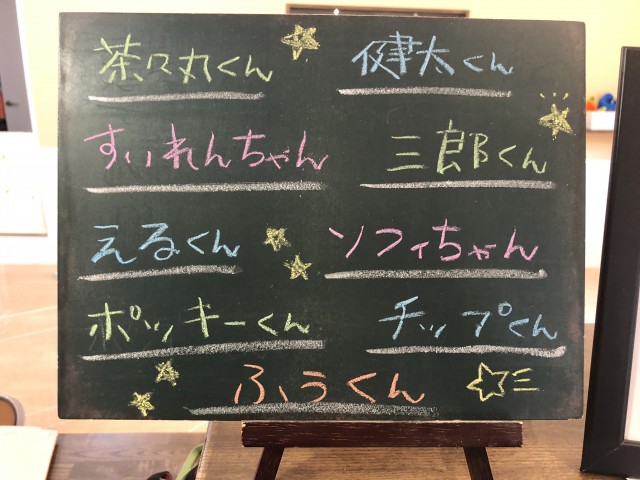 茶々丸くん 健太くん
すいれんちゃん 三郎くん
えるくん ソフィちゃん
ポッキーくん チップくん
ふうくん